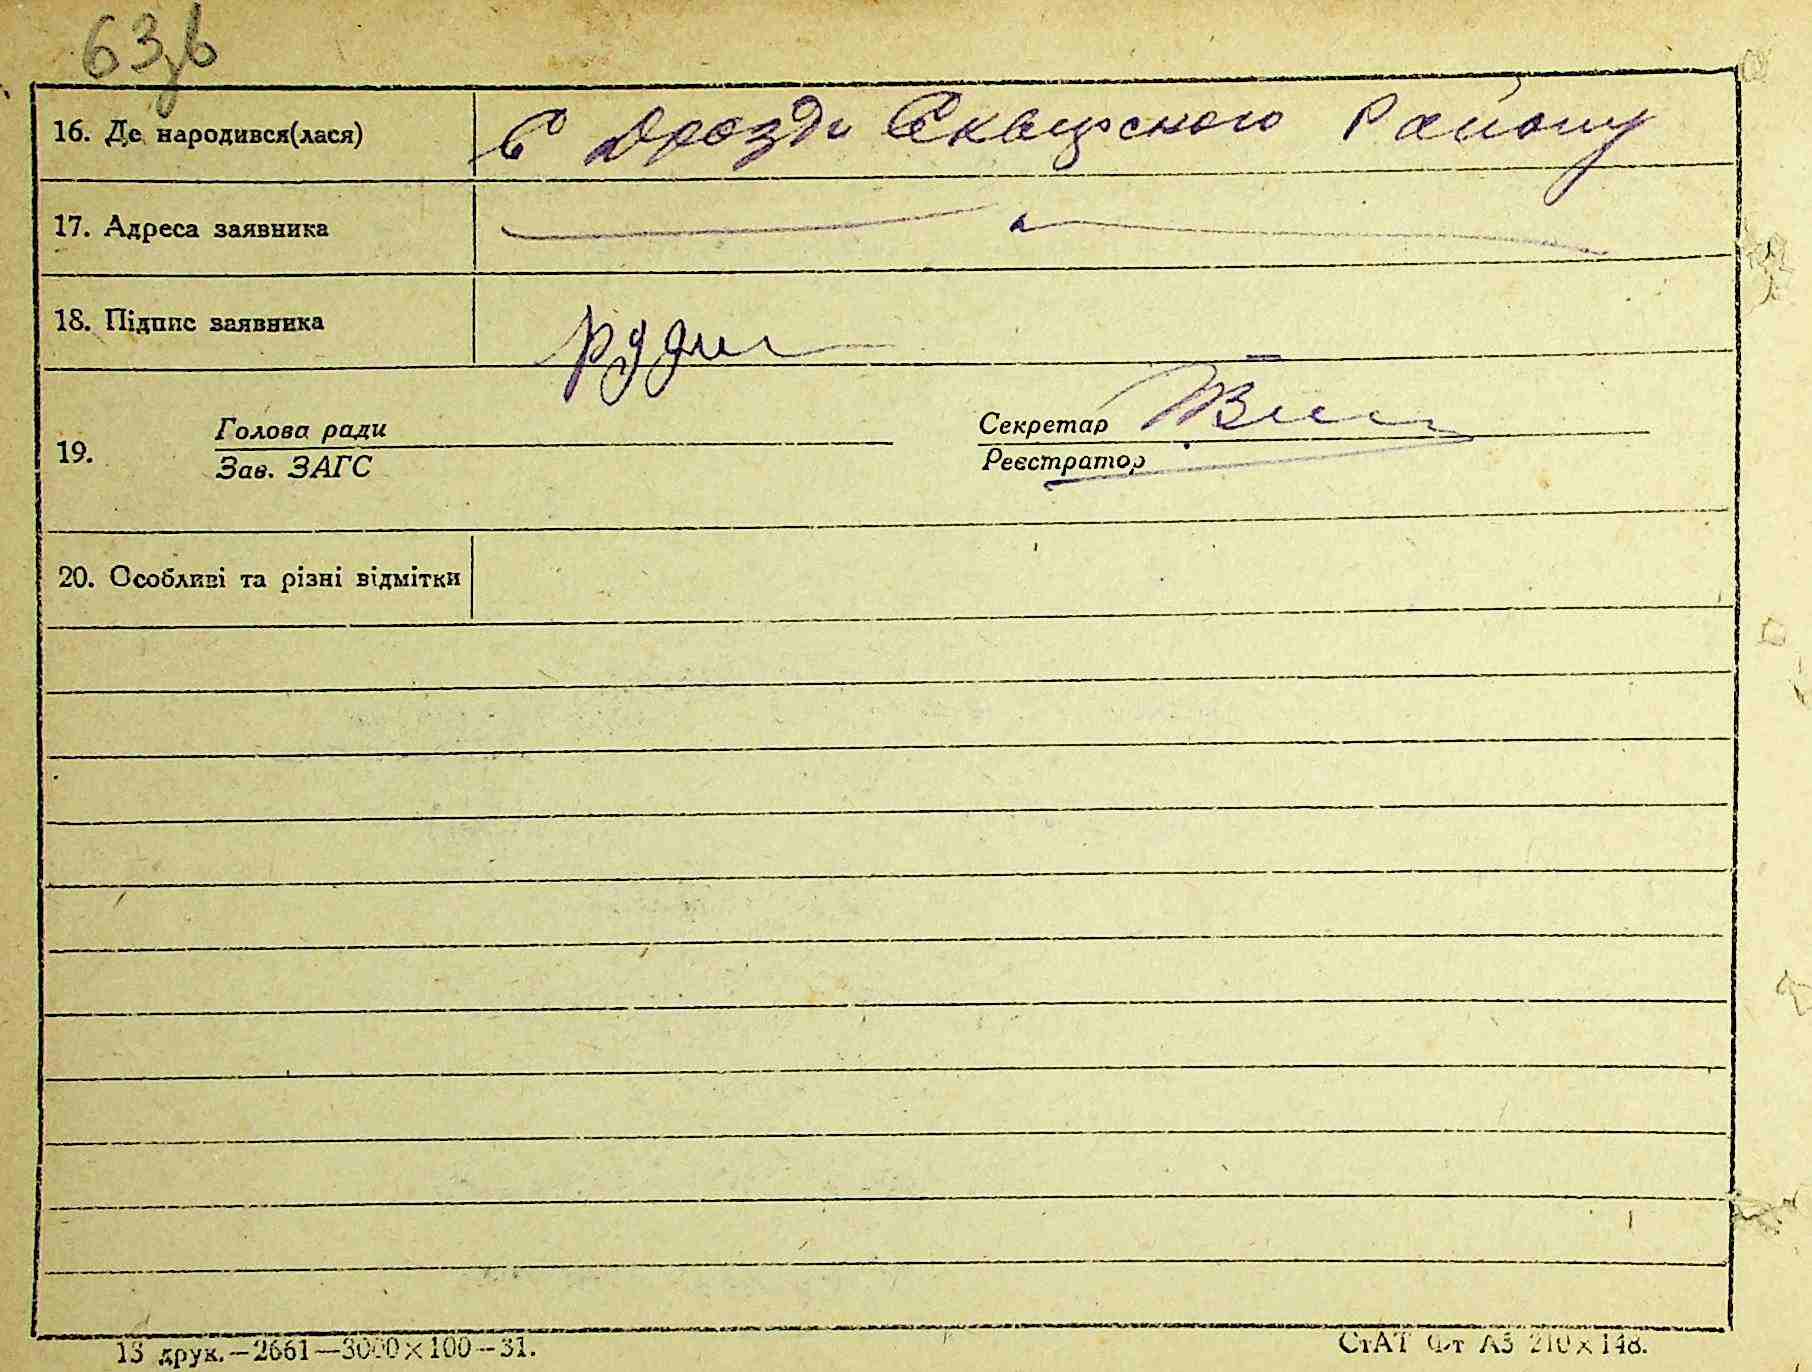 63зв
16. Де народився(лася) с Дрозди Сквирського Району
17. Адреса заявника
18. Підпис заявника
19. Голова ради
Зав. ЗАГС
Секретар
Реєстратор
20. Особливі та різні відмітки
13 друк.—2661—3000×100—31.
СтАТ Фт А5 210×148.